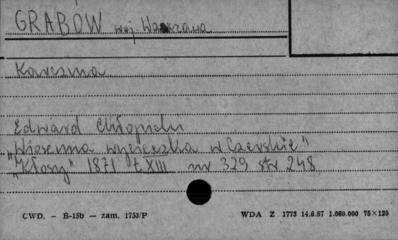 GRABÓW woj. Warszawa
Karczma
Edward Chłopicki
„Wiosenna wycieczka w Czerskie"
„Kłosy" 1871 t. XIII nr 329 str 248
CWD. — B-15b — zam. 1753/P WDA Z 1773 14.6.67 1.060.000 75×125